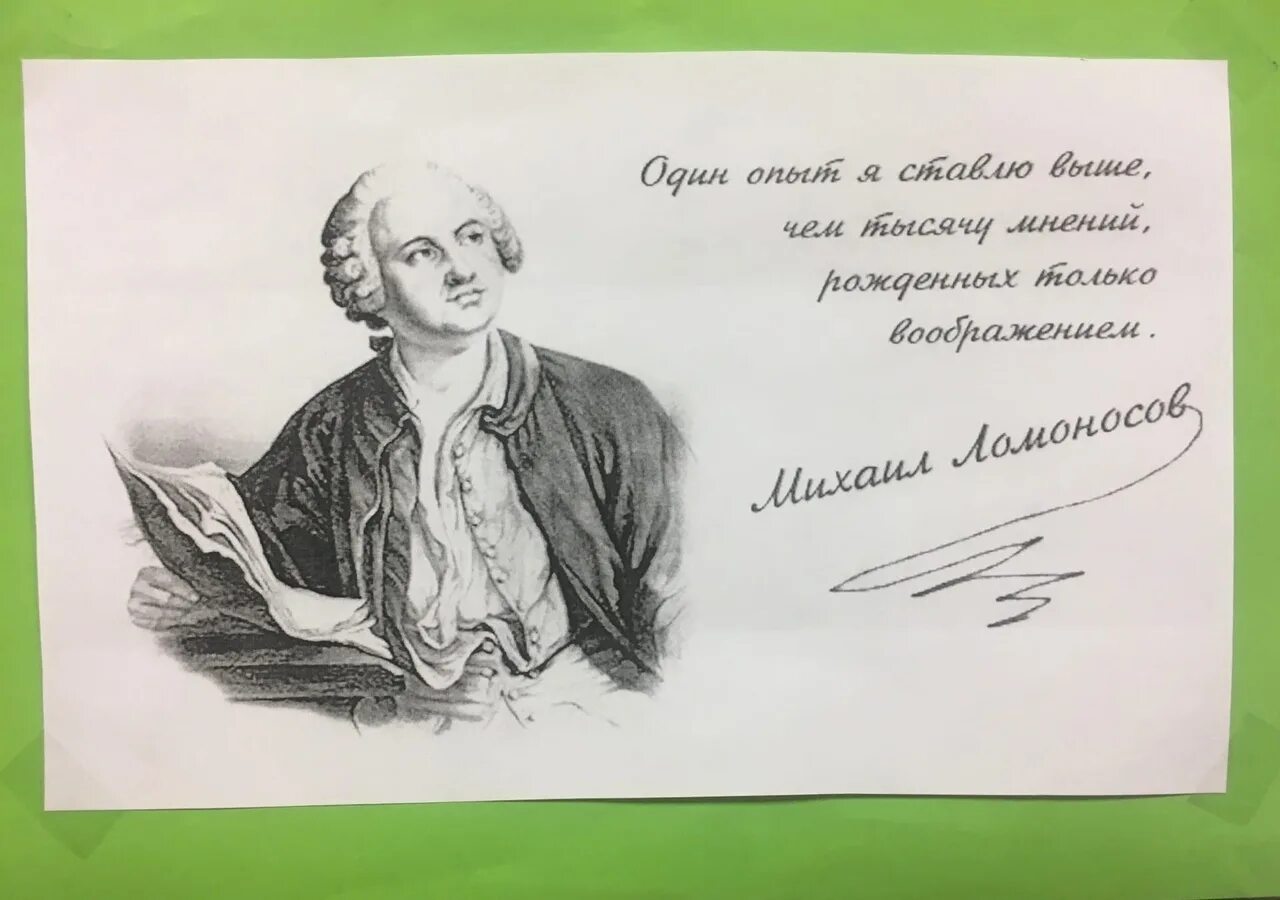 Один опыт я ставлю выше,
чем тысячу мнений,
рожденных только
воображением.
Михаил Ломоносов